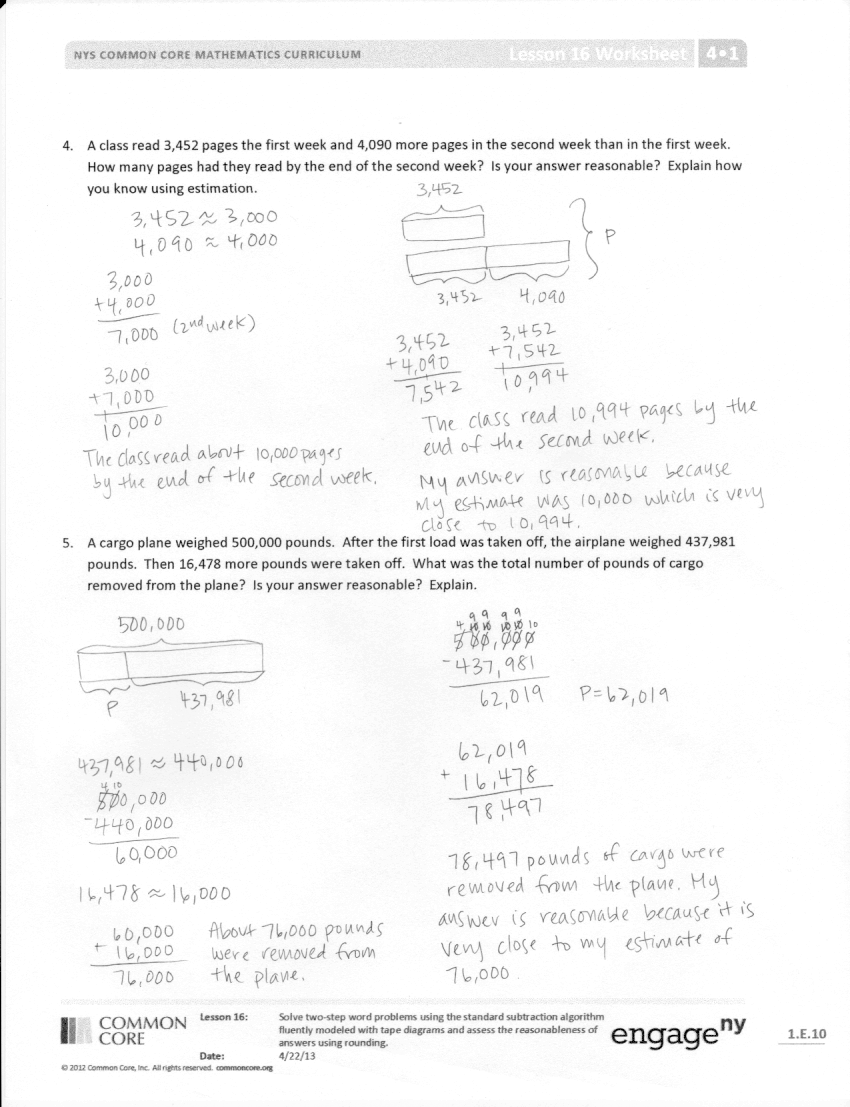 NYS COMMON CORE MATHEMATICS CURRICULUM Lesson 16 Worksheet 4•1
4. A class read 3,452 pages the first week and 4,090 more pages in the second week than in the first week.
How many pages had they read by the end of the second week? Is your answer reasonable? Explain how
you know using estimation.
3,452 ≈ 3,000
4,090 ≈ 4,000
3,000
+4,000
7,000 (2nd week)
3,000
+7,000
1
10,000
The class read about 10,000 pages
by the end of the second week.
3,452
P
3,452 4,090
3,452
+4,090
1
7,542
3,452
+7,542
1
10,994
The class read 10,994 pages by the
end of the second week.
My answer is reasonable because
My estimate was 10,000 which is very
close to 10,994.
5. A cargo plane weighed 500,000 pounds. After the first load was taken off, the airplane weighed 437,981
pounds. Then 16,478 more pounds were taken off. What was the total number of pounds of cargo
removed from the plane? Is your answer reasonable? Explain.
500,000
P 437,981
437,981 ≈ 440,000
4 10
500,000
-440,000
60,000
16,478 ≈ 16,000
60,000
+ 16,000
76,000
About 76,000 pounds
were removed from
the plane.
9 9 9 9
4 10 10 10 10 10
500,000
-437,981
62,019 P=62,019
62,019
+ 16,478
1
78,497
78,497 pounds of cargo were
removed from the plane. My
answer is reasonable because it is
very close to my estimate of
76,000.
COMMON
CORE
Lesson 16: Solve two-step word problems using the standard subtraction algorithm
fluently modeled with tape diagrams and assess the reasonableness of
answers using rounding.
Date: 4/22/13
© 2012 Common Core, Inc. All rights reserved. commoncore.org
engage ny
1.E.10